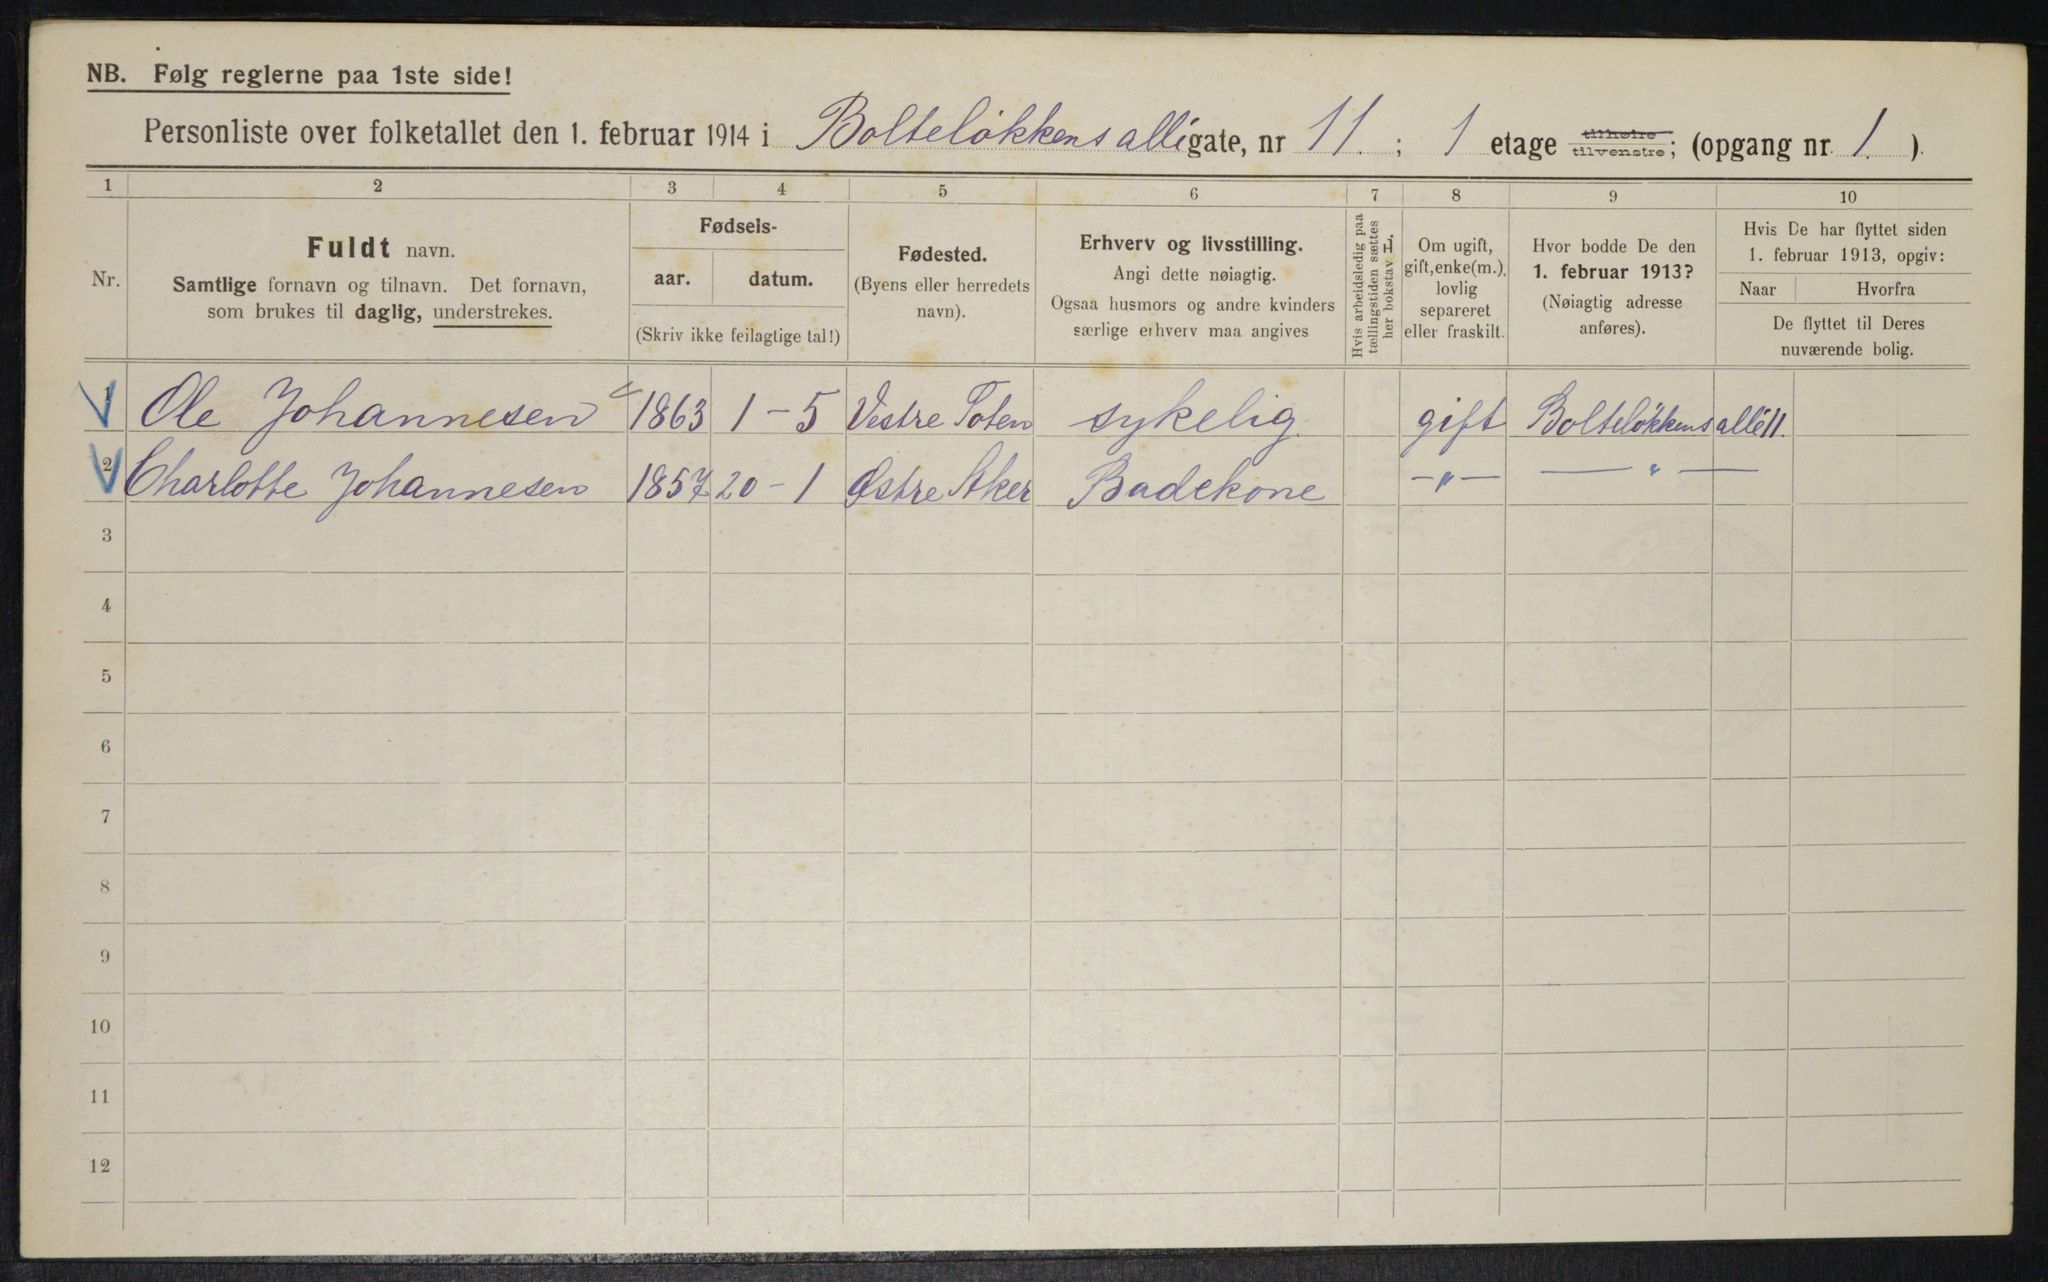 NB. Følg reglerne paa 1ste side!
Personliste over folketallet den 1. februar 1914 i Bolteløkkens allé gate, nr 11. ; 1 etage tilhøire tilvenstre; (opgang nr. 1. ).
1 2 3 4 5 6 7 8 9 10
Nr.
Fuldt navn.
Samtlige fornavn og tilnavn. Det fornavn,
som brukes til daglig, understrekes.
Fødsels-
aar. datum.
(Skriv ikke feilagtige tal!)
Fødested.
(Byens eller herredets
navn).
Erhverv og livsstilling.
Angi dette nøiagtig.
Ogsaa husmors og andre kvinders
særlige erhverv maa angives
Hvis arbeidsledig paa
tællingstiden sættes
her bokstav L.
Om ugift,
gift, enke(m.),
lovlig
separeret
eller fraskilt.
Hvor bodde De den
1. februar 1913?
(Nøiagtig adresse
anføres).
Hvis De har flyttet siden
1. februar 1913, opgiv:
Naar Hvorfra
De flyttet til Deres
nuværende bolig.
1 Ole Johannesen 1863 1-5 Vestre Toten sykelig. gift Bolteløkkens allé 11.
2 Charlotte Johannesen 1857 20-1 Østre Aker Badekone -„- — „ —
3
4
5
6
7
8
9
10
11
12